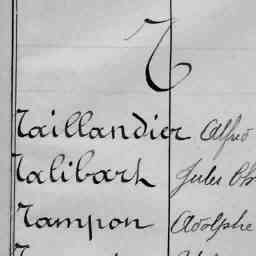 T
Taillandier Alfred
Talibart Jules
Tampon Adolphe